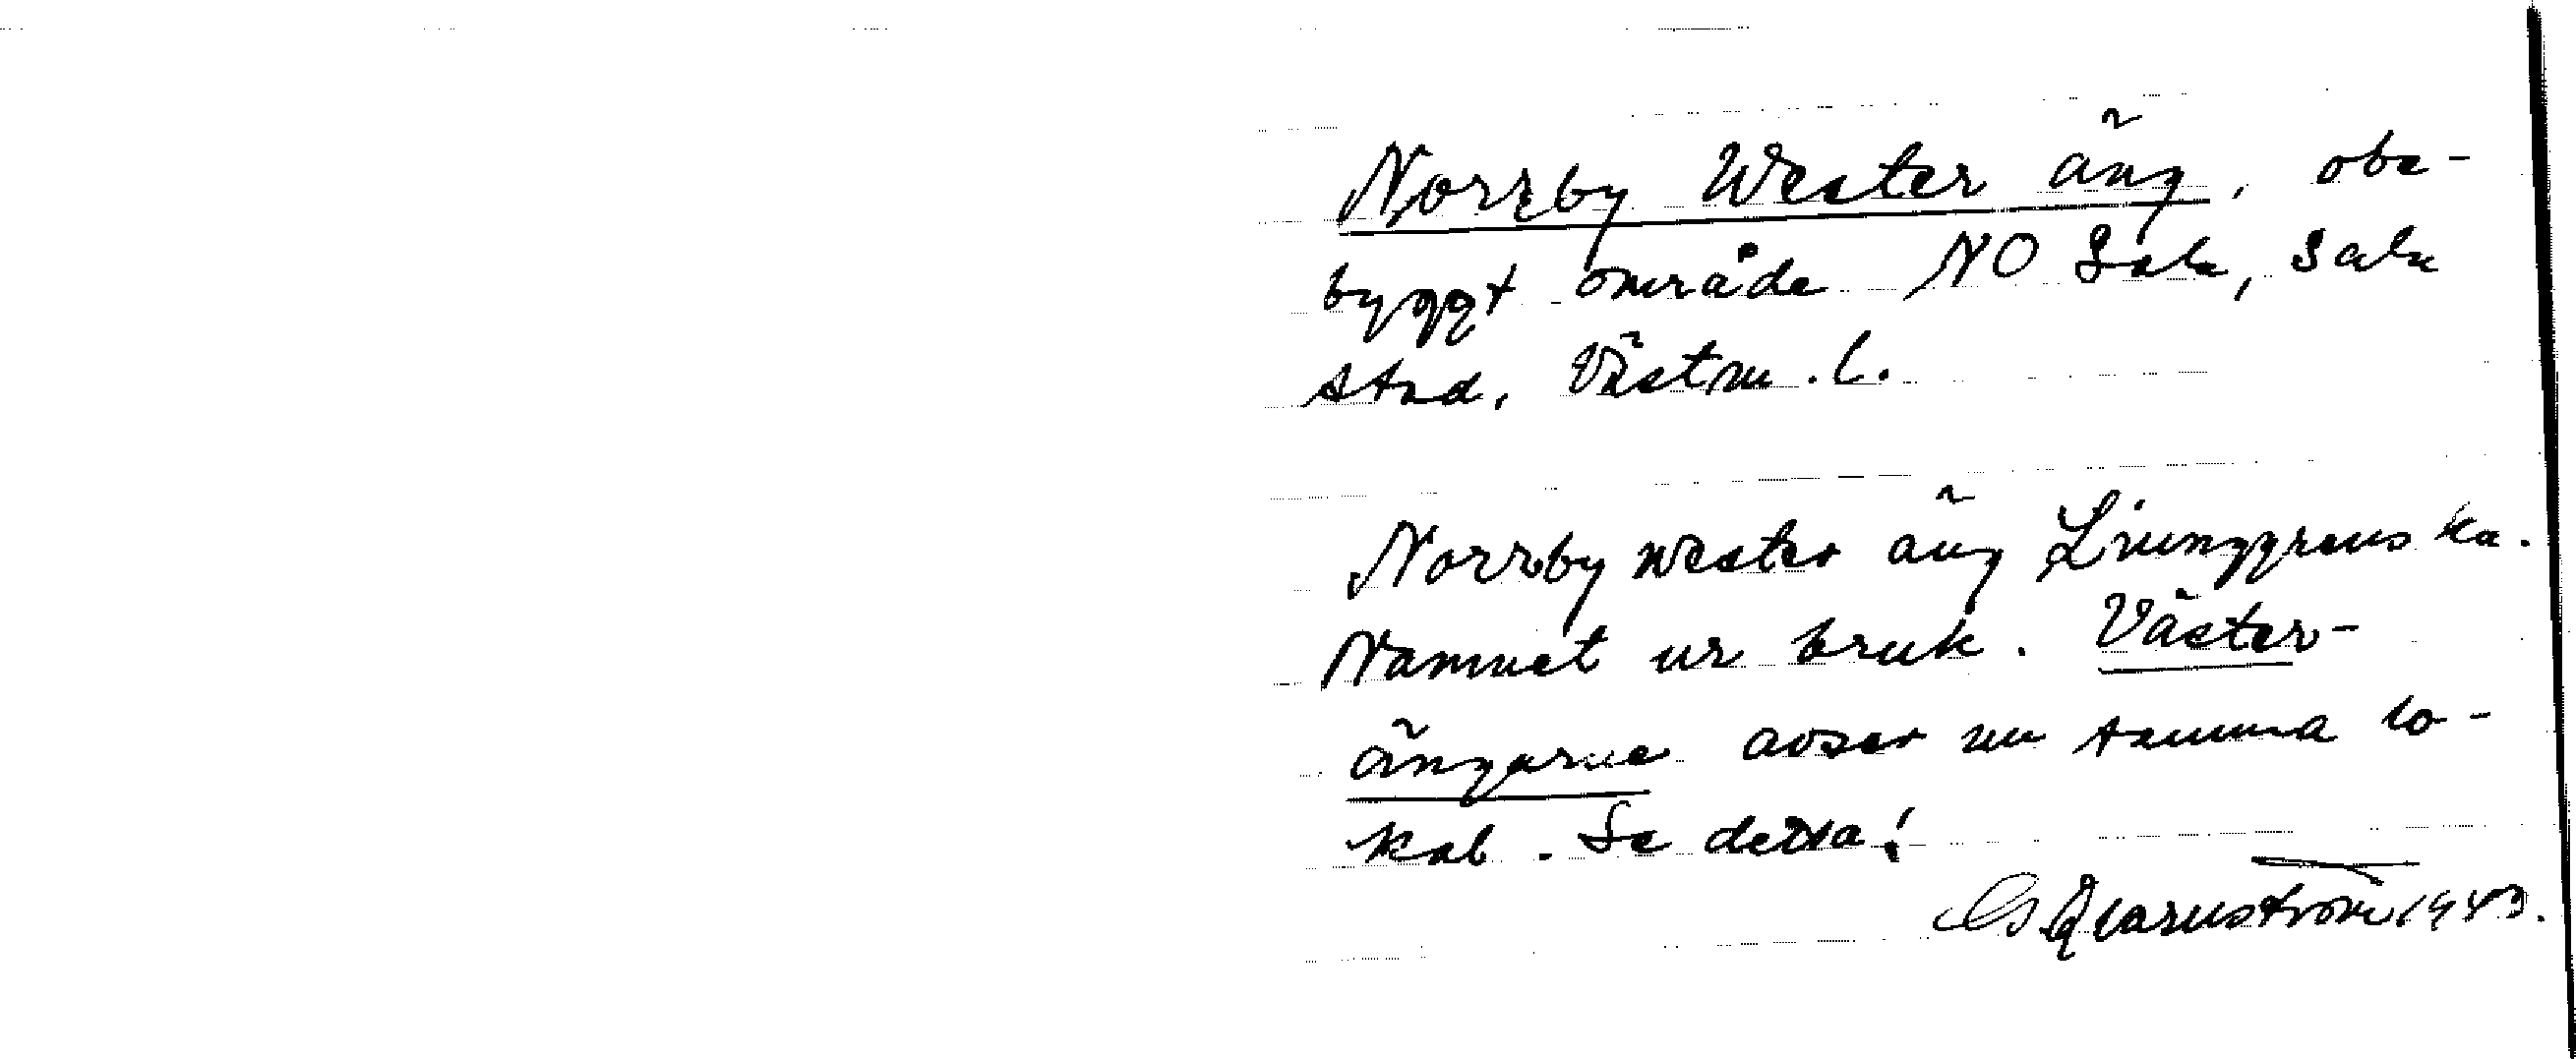 Norrby Wester äng, obe-
byggt område NO Sala, Sala
stad, Västm. l.
Norrby wester äng Liunggrenska.
Namnet ur bruk. Väster-
ängarne avser nu samma lo-
kal. Se detta!
G Qvarnström 1943.